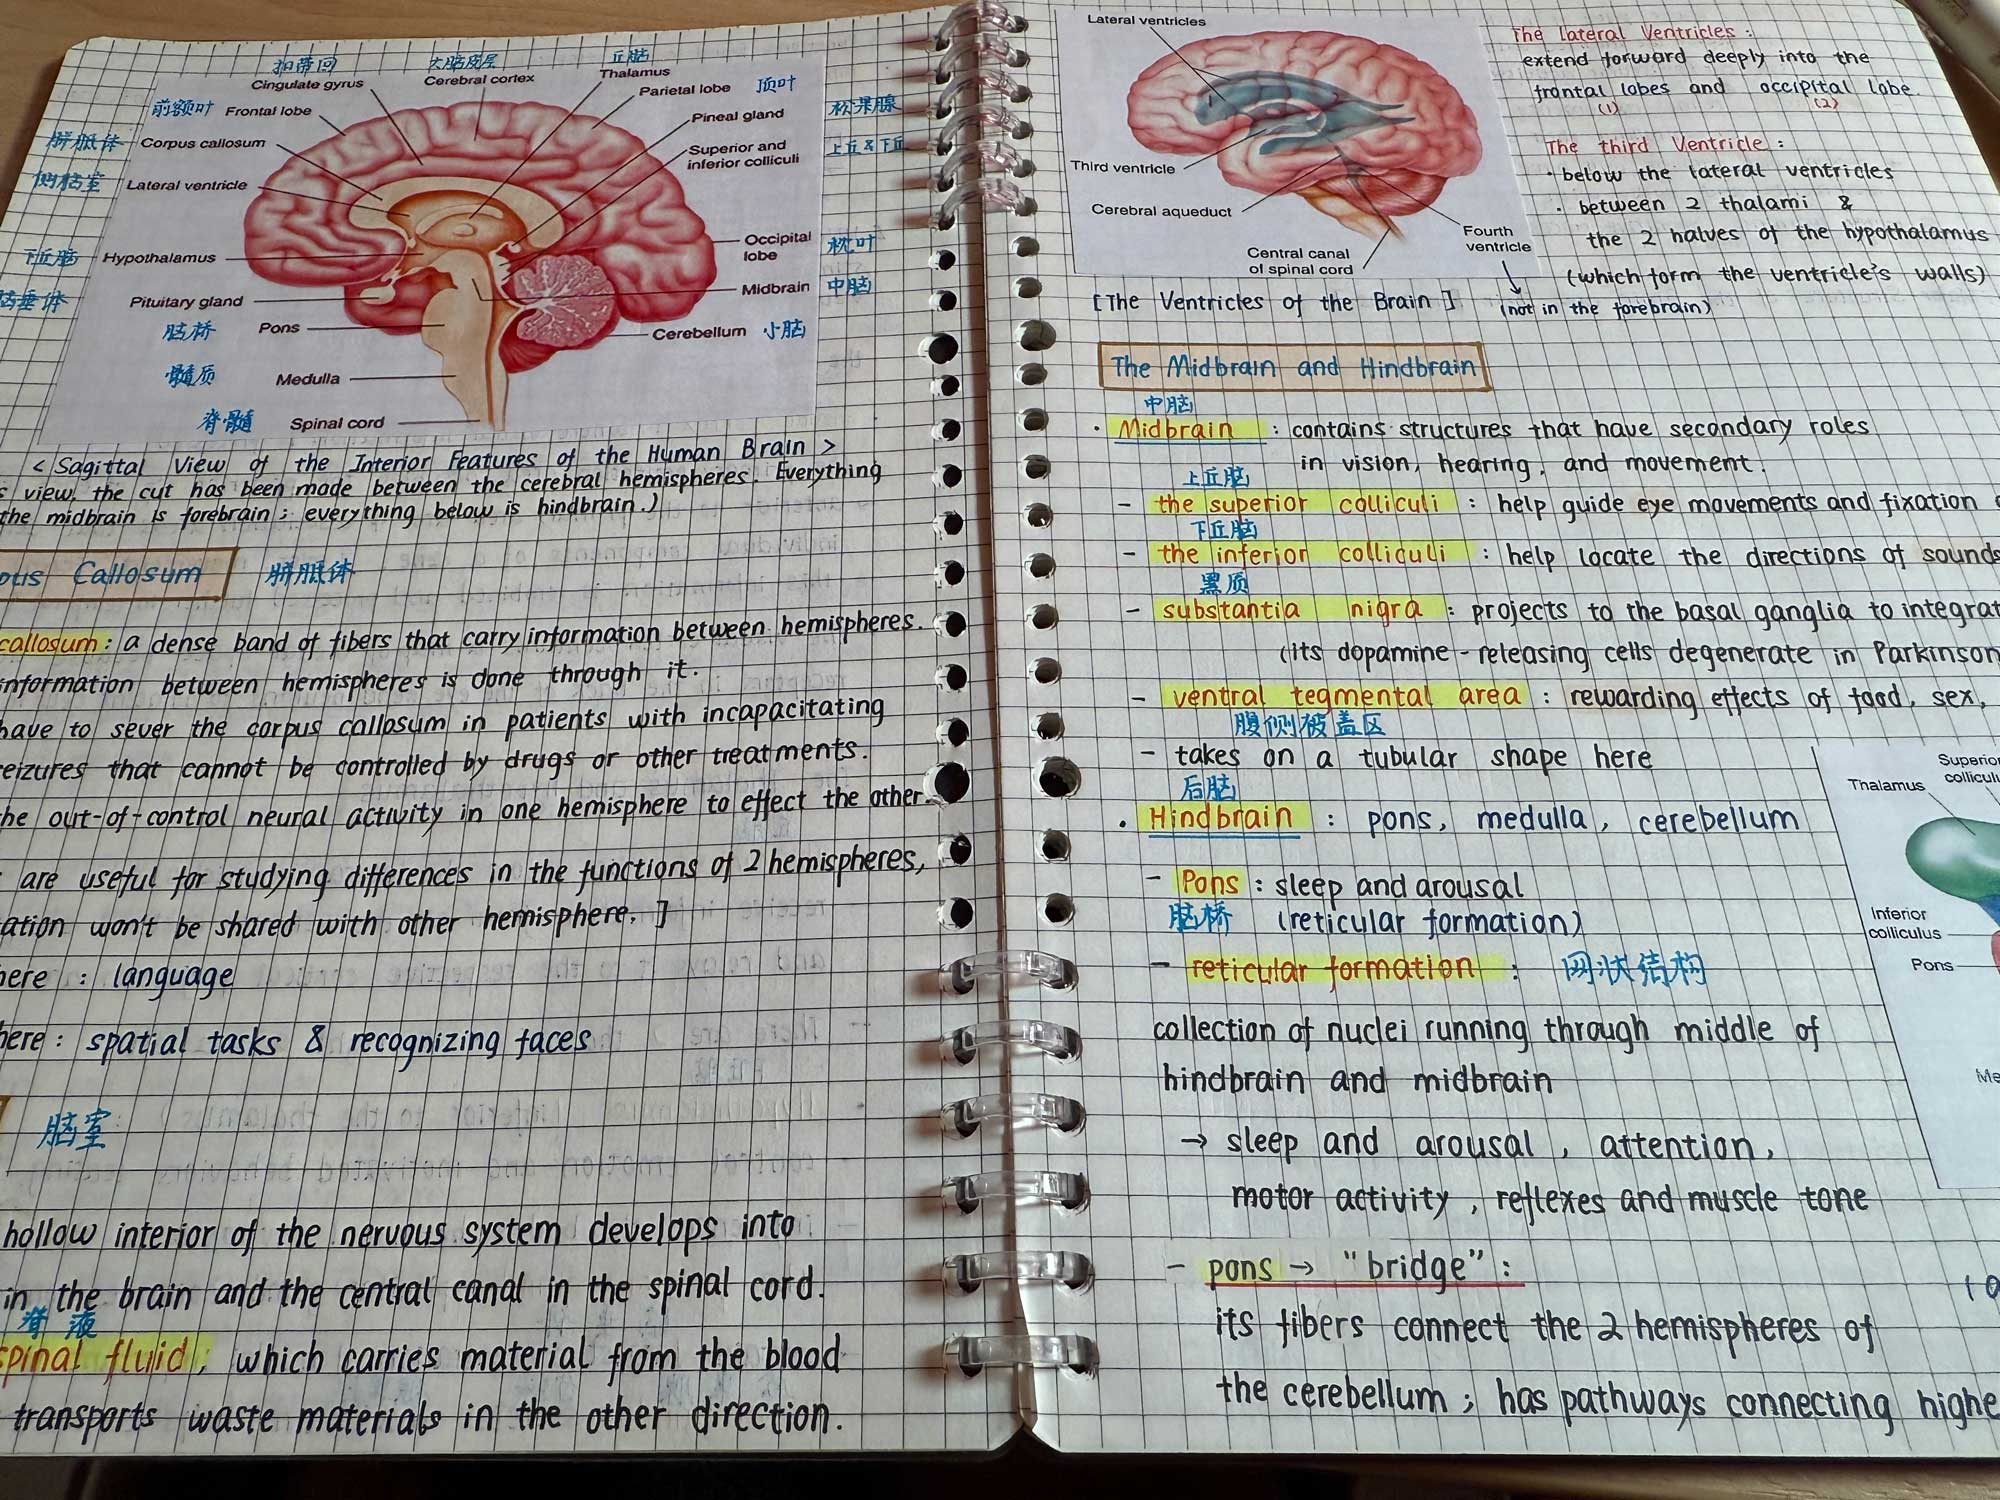 扣带回
大脑皮层
丘脑
Cingulate gyrus
Cerebral cortex
Thalamus
前额叶
Frontal lobe
Parietal lobe
顶叶
胼胝体
Corpus callosum
Pineal gland
松果腺
Superior and
inferior colliculi
上丘&下丘
Lateral ventricle
下丘脑
Hypothalamus
Occipital
lobe
枕叶
脑垂体
Pituitary gland
Midbrain
中脑
脑桥
Pons
Cerebellum
小脑
髓质
Medulla
脊髓
Spinal cord
< Sagittal View of the Interior Features of the Human Brain >
view, the cut has been made between the cerebral hemispheres. Everything
the midbrain is forebrain ; everything below is hindbrain.)
ous Callosum
胼胝体
callosum : a dense band of fibers that carry information between hemispheres.
information between hemispheres is done through it.
have to sever the corpus callosum in patients with incapacitating
eizures that cannot be controlled by drugs or other treatments.
he out-of-control neural activity in one hemisphere to effect the other.
are useful for studying differences in the functions of 2 hemispheres,
ation won't be shared with other hemisphere. ]
here : language
here : spatial tasks & recognizing faces
脑室
hollow interior of the nervous system develops into
in the brain and the central canal in the spinal cord.
脊液
spinal fluid, which carries material from the blood
transports waste materials in the other direction.
Lateral ventricles
Third ventricle
Cerebral aqueduct
Central canal
of spinal cord
Fourth
ventricle
[The Ventricles of the Brain]
(not in the forebrain)
The lateral Ventricles :
extend forward deeply into the
frontal lobes and occipital lobe.
(1) (2)
The third Ventricle :
· below the lateral ventricles
· between 2 thalami &
the 2 halves of the hypothalamus
(which form the ventricle's walls)
The Midbrain and Hindbrain
中脑
· Midbrain : contains structures that have secondary roles
in vision, hearing, and movement.
上丘脑
- the superior colliculi : help guide eye movements and fixation
下丘脑
- the inferior colliculi : help locate the directions of sounds
黑质
- substantia nigra : projects to the basal ganglia to integrat
(its dopamine-releasing cells degenerate in Parkinson
- ventral tegmental area : rewarding effects of food, sex,
腹侧被盖区
- takes on a tubular shape here
后脑
· Hindbrain : pons, medulla, cerebellum
- Pons : sleep and arousal
脑桥 (reticular formation)
- reticular formation : 网状结构
collection of nuclei running through middle of
hindbrain and midbrain
→ sleep and arousal, attention,
motor activity, reflexes and muscle tone
- pons → "bridge" :
its fibers connect the 2 hemispheres of
the cerebellum ; has pathways connecting highe
Superior
collicul
Thalamus
Inferior
colliculus
Pons
Me